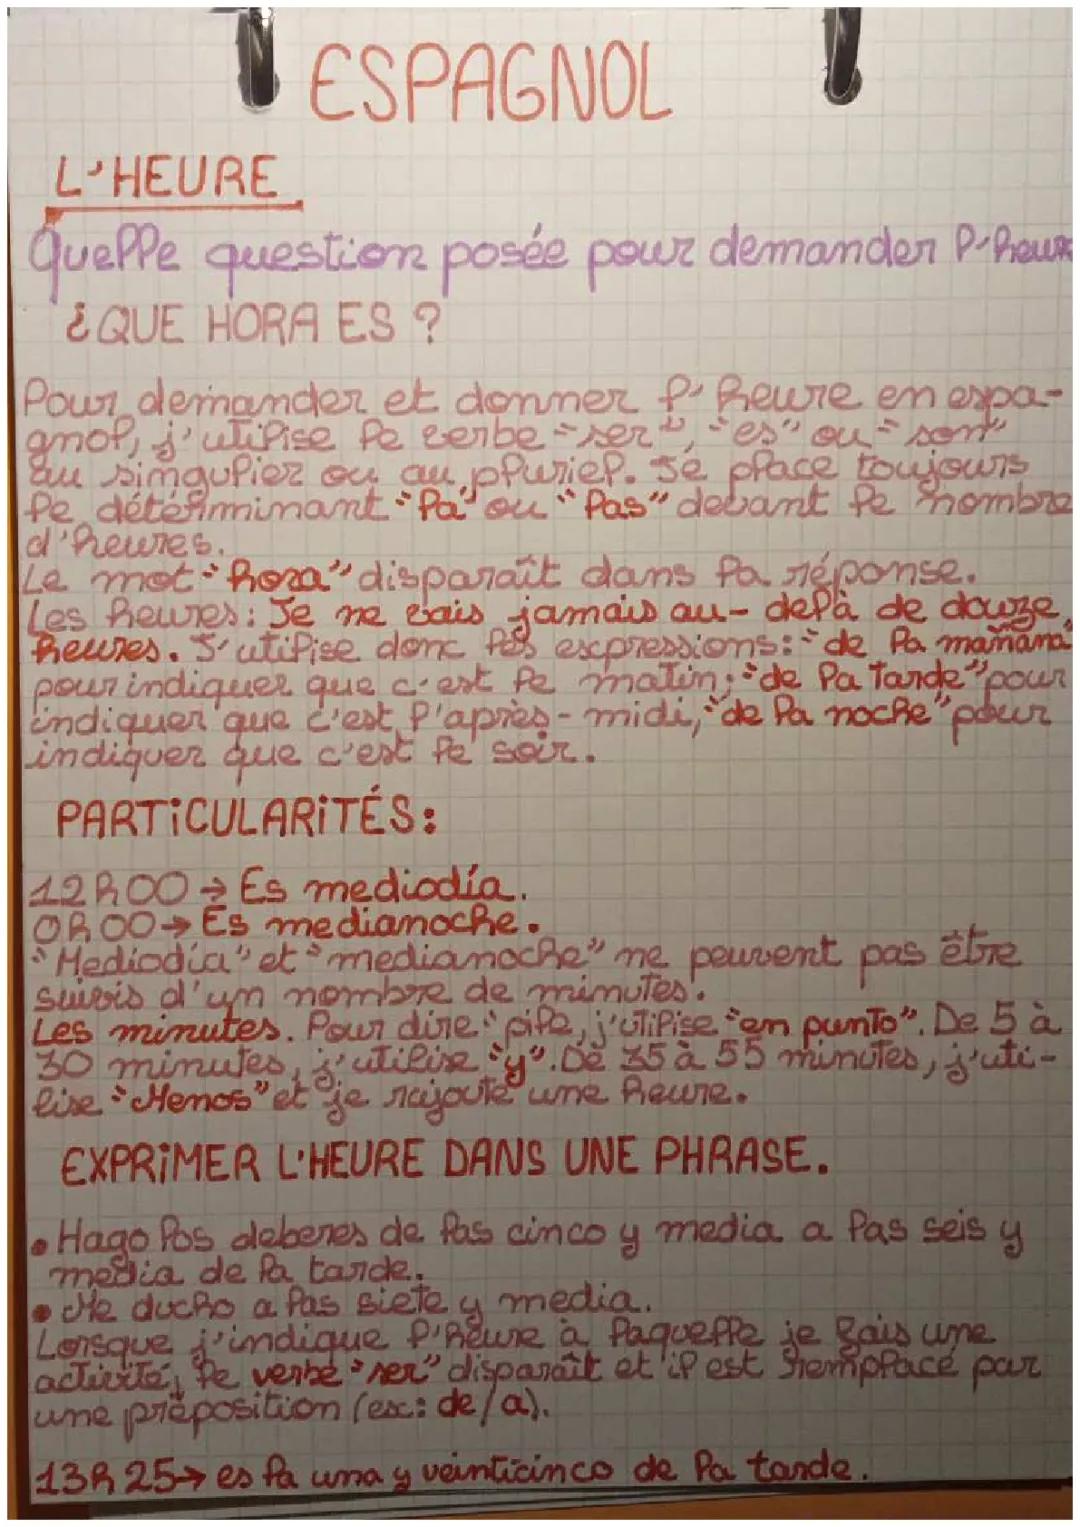 ESPAGNOL
L'HEURE
Quelle question posée pour demander l'heure
¿QUE HORA ES ?
Pour demander et donner l'heure en espa-
gnol, j'utilise le verbe "ser", "es" ou "son"
au singulier ou au pluriel. Je place toujours
le déterminant "la" ou "las" devant le nombre
d'heures.
Le mot "hora" disparaît dans la réponse.
Les heures : Je ne vais jamais au-delà de douze
heures. J'utilise donc les expressions : "de la mañana"
pour indiquer que c'est le matin; "de la tarde" pour
indiquer que c'est l'après-midi, "de la noche" pour
indiquer que c'est le soir.
PARTICULARITÉS :
12h00 → Es mediodía.
0h00 → Es medianoche.
"Mediodía" et "medianoche" ne peuvent pas être
suivis d'un nombre de minutes.
Les minutes. Pour dire "pile, j'utilise "en punto". De 5 à
30 minutes, j'utilise "y". De 35 à 55 minutes, j'uti-
lise "Menos" et je rajoute une heure.
EXPRIMER L'HEURE DANS UNE PHRASE.
• Hago los deberes de las cinco y media a las seis y
media de la tarde.
• Me ducho a las siete y media.
Lorsque j'indique l'heure à laquelle je fais une
activité, le verbe "ser" disparaît et il est remplacé par
une préposition (ex: de/a).
13h25 → es la una y veinticinco de la tarde.